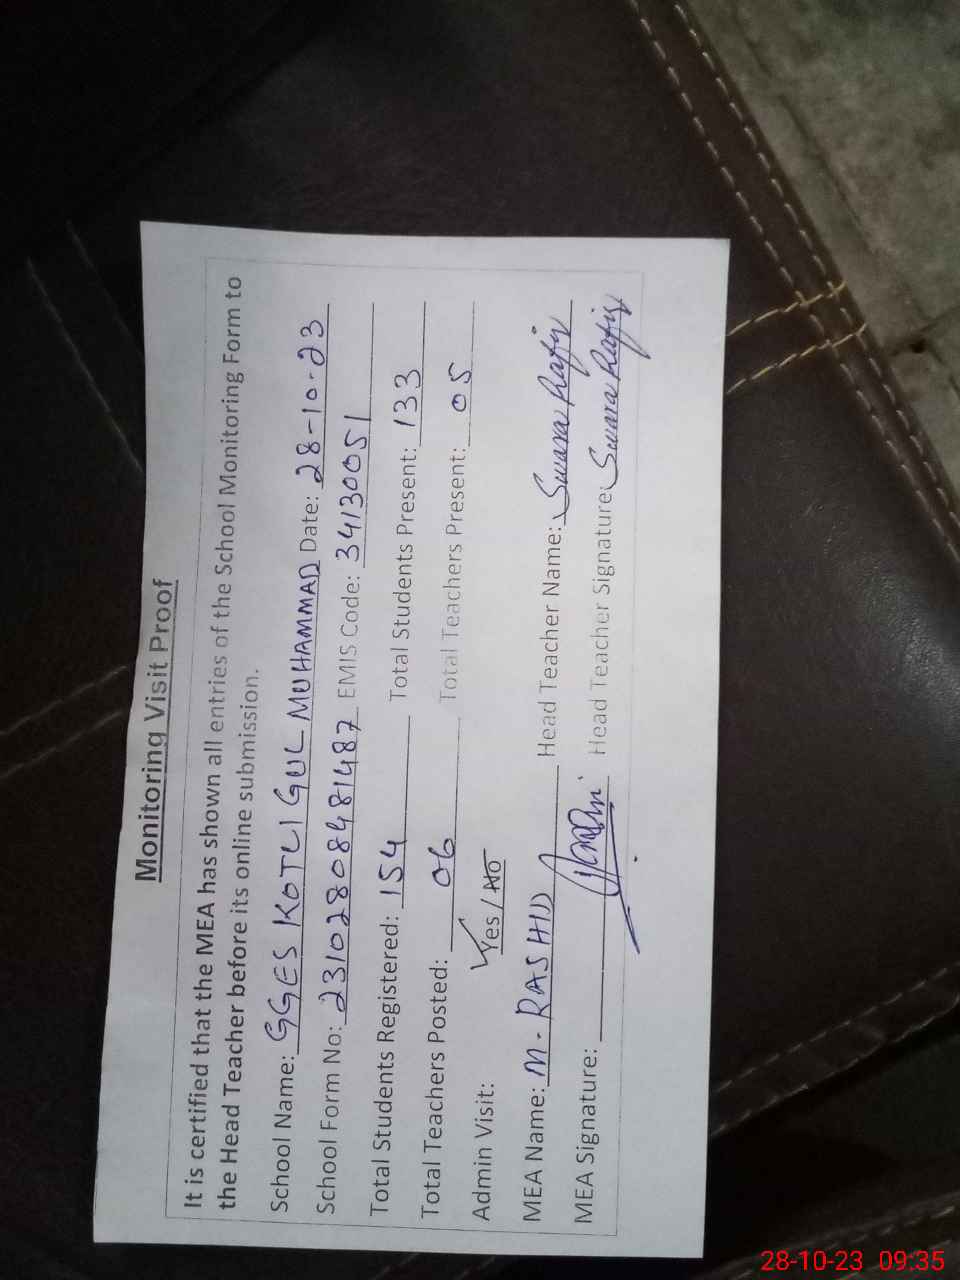 Monitoring Visit Proof
It is certified that the MEA has shown all entries of the School Monitoring Form to
the Head Teacher before its online submission.
School Name: GGES KOTLI GUL MUHAMMAD Date: 28-10-23
School Form No: 23102808481487 EMIS Code: 34130051
Total Students Registered: 154 Total Students Present: 133
Total Teachers Posted: 06 Total Teachers Present: 05
Admin Visit: Yes / No
MEA Name: M. RASHID Head Teacher Name: Rafiq
MEA Signature: Head Teacher Signature: Rafiq
28-10-23 09:35